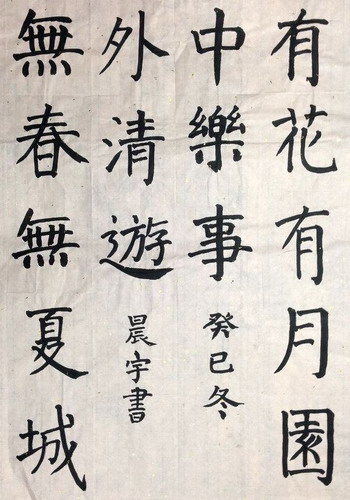 有花有月園
中樂事
癸巳冬
無春無夏城
外清遊
晨宇書